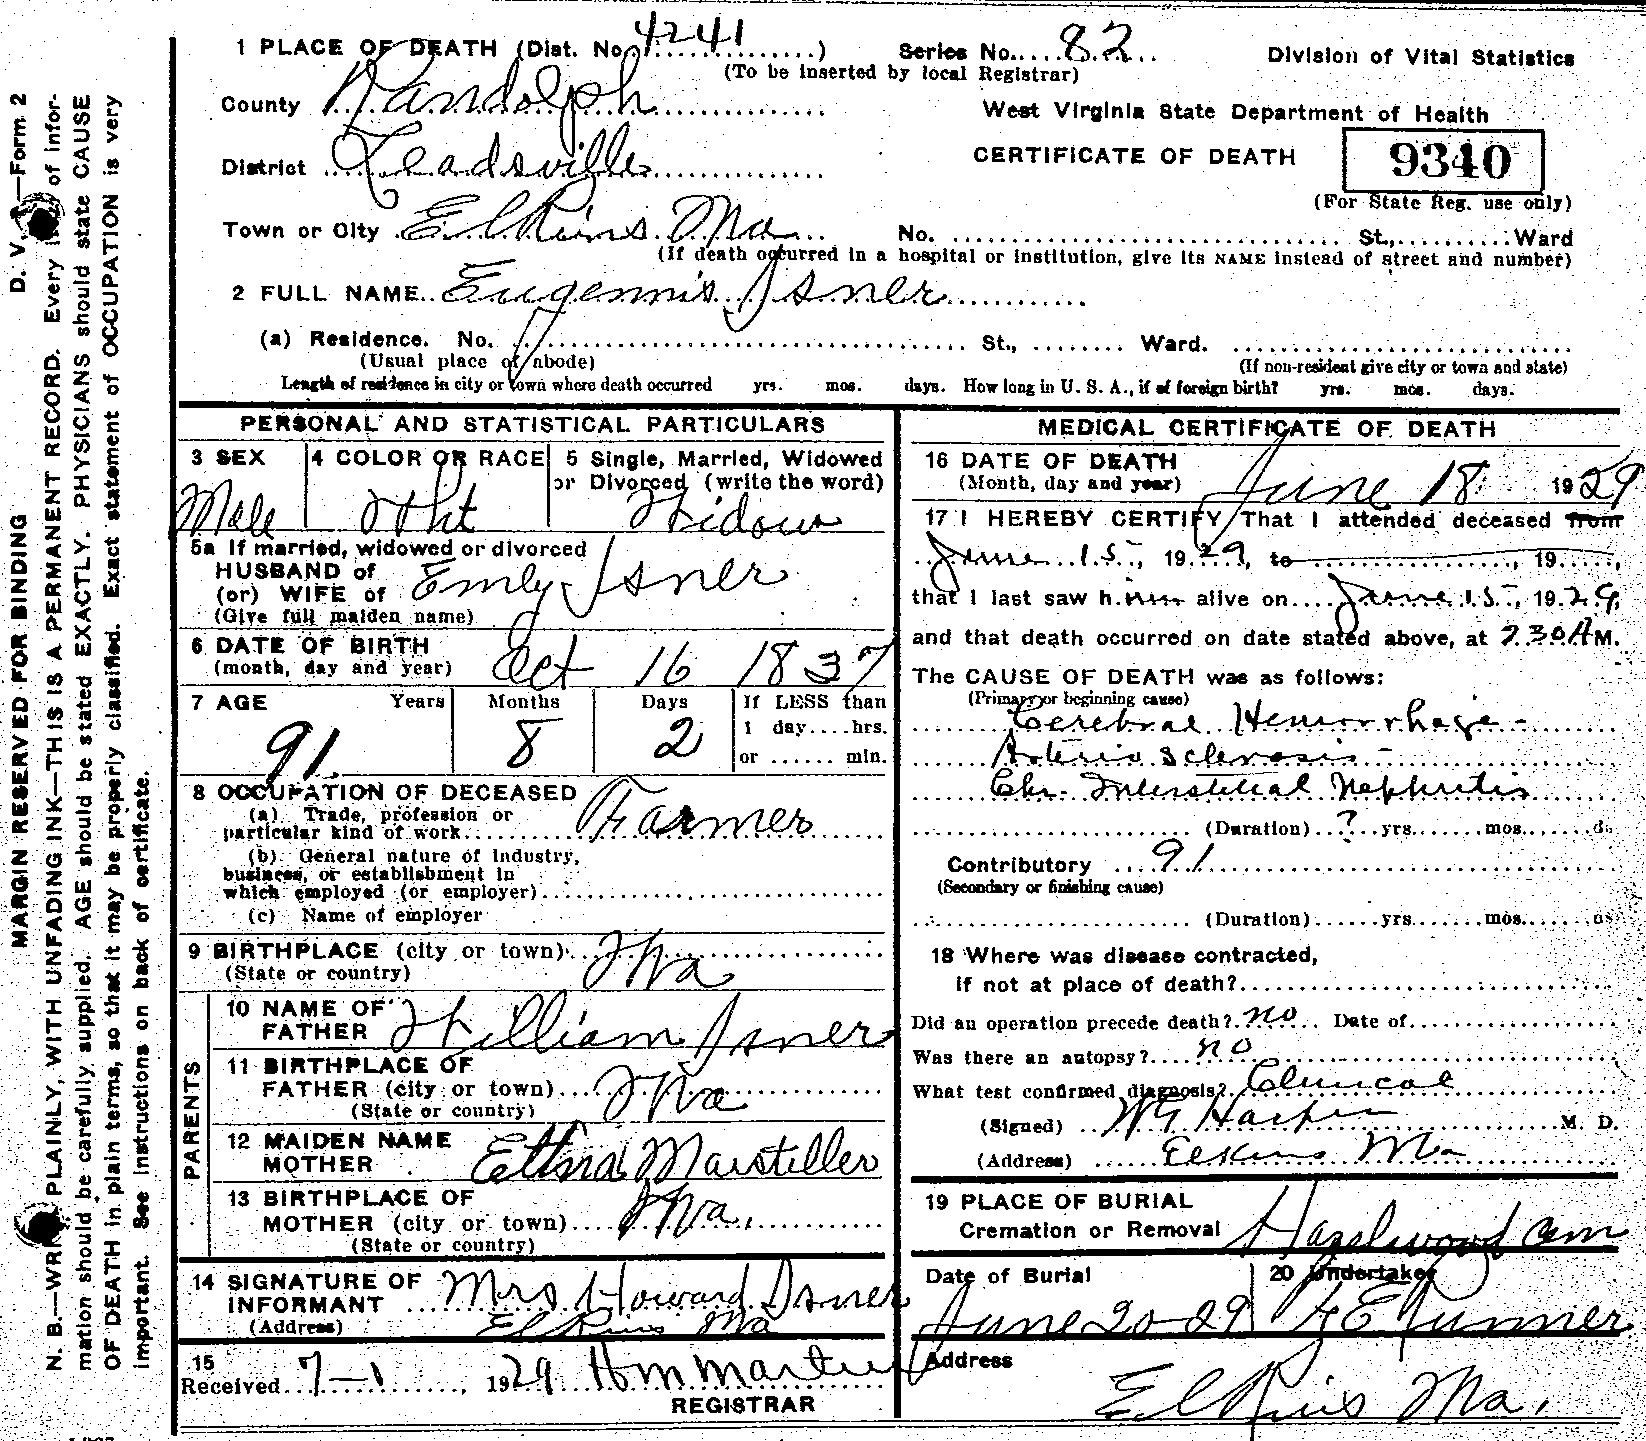 1 PLACE OF DEATH (Dist. No. 4241) Series No. 82 Division of Vital Statistics
(To be inserted by local Registrar)
County Randolph West Virginia State Department of Health
District Leadsville CERTIFICATE OF DEATH 9340
(For State Reg. use only)
Town or City Elkins W Va No. St., Ward
(If death occurred in a hospital or institution, give its NAME instead of street and number)
2 FULL NAME Eugennis Isner
(a) Residence. No. St., Ward.
(Usual place of abode) (If non-resident give city or town and state)
Length of residence in city or town where death occurred yrs. mos. days. How long in U. S. A., if of foreign birth? yrs. mos. days.
PERSONAL AND STATISTICAL PARTICULARS
3 SEX 4 COLOR OR RACE 5 Single, Married, Widowed
or Divorced (write the word)
Male Wht Widow
5a If married, widowed or divorced
HUSBAND of
(or) WIFE of Emly Isner
(Give full maiden name)
6 DATE OF BIRTH
(month, day and year) Oct 16 1837
7 AGE Years Months Days If LESS than
1 day....hrs.
91 8 2 or ...... min.
8 OCCUPATION OF DECEASED
(a) Trade, profession or
particular kind of work Farmer
(b) General nature of industry,
business, or establishment in
which employed (or employer)
(c) Name of employer
9 BIRTHPLACE (city or town) W Va
(State or country)
PARENTS
10 NAME OF
FATHER William Isner
11 BIRTHPLACE OF
FATHER (city or town) W Va
(State or country)
12 MAIDEN NAME
MOTHER Marsteller
13 BIRTHPLACE OF
MOTHER (city or town) W Va.
(State or country)
14 SIGNATURE OF
INFORMANT Mrs Howard Isner
(Address) Elkins W Va
15
Received 7-1, 1929 H M Martin
REGISTRAR
MEDICAL CERTIFICATE OF DEATH
16 DATE OF DEATH
(Month, day and year) June 18 1929
17 I HEREBY CERTIFY That I attended deceased from
June 15, 1929, to , 19
that I last saw h.im alive on June 15, 1929,
and that death occurred on date stated above, at 2.30 A M.
The CAUSE OF DEATH was as follows:
(Primary or beginning cause)
Cerebral Hemorrhage -
Arterio Sclerosis -
Chr. Interstitial Nephritis
(Duration) ? yrs. mos. ds
Contributory 91
(Secondary or finishing cause)
(Duration) yrs. mos. ds
18 Where was disease contracted,
if not at place of death?
Did an operation precede death? no Date of
Was there an autopsy? no
What test confirmed diagnosis? Clinical
(Signed) W G Harper M. D.
(Address) Elkins W Va
19 PLACE OF BURIAL
Cremation or Removal Hazelwood Cem
Date of Burial 20 Undertaker
June 20-29
Address
Elkins W Va.
MARGIN RESERVED FOR BINDING D. V. —Form 2
N. B.—WRITE PLAINLY, WITH UNFADING INK—THIS IS A PERMANENT RECORD. Every item of infor-
mation should be carefully supplied. AGE should be stated EXACTLY. PHYSICIANS should state CAUSE
OF DEATH in plain terms, so that it may be properly classified. Exact statement of OCCUPATION is very
important. See instructions on back of certificate.